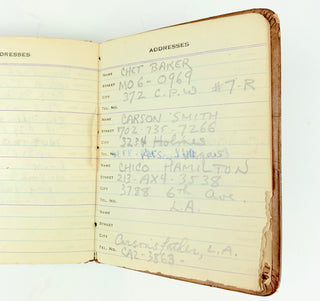 ADDRESSES
ADDRESSES
NAME CHET BAKER
STREET MO6-0969
CITY 372 C.P.W #7-R
TEL. NO.
NAME CARSON SMITH
STREET 702-735-7266
CITY 3234 Holmes
TEL. NO.
NAME CHICO HAMILTON
STREET 213-AX4-3538
CITY 3788 6th Ave.
TEL. NO. L.A.
NAME
STREET
CITY L.A.
TEL. NO. CA2-3868-